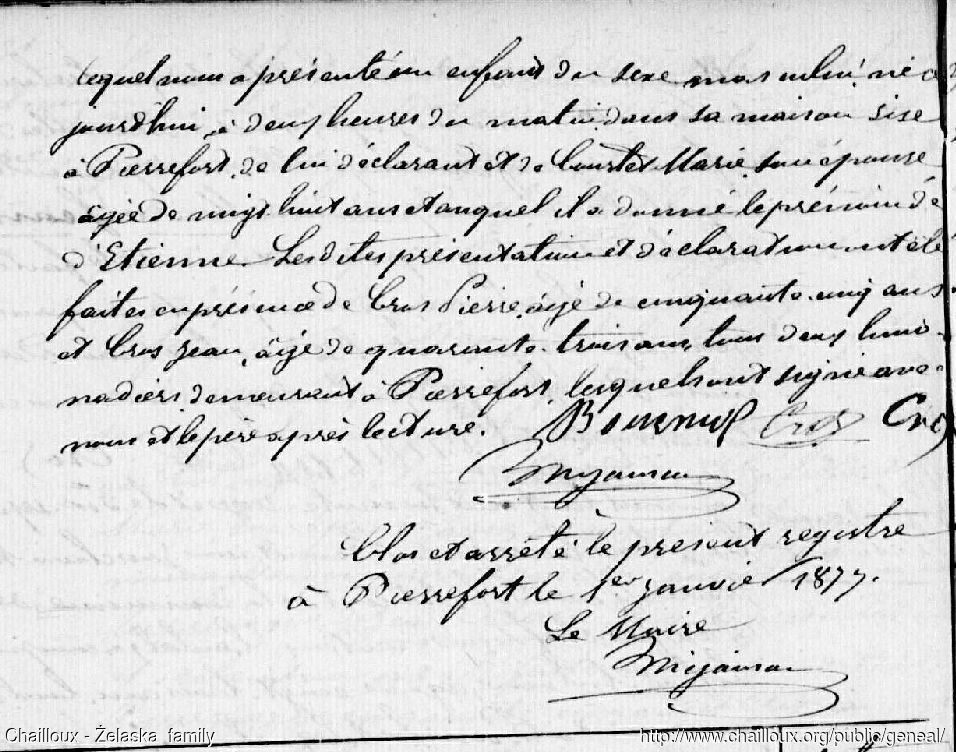 lequel nous a présenté un enfant du sexe masculin né a
jourd'hui, à deux heures du matin dans sa maison sise
à Pierrefort, de lui déclarant et de Courtet Marie, son épouse
âgée de vingt huit ans et auquel il a donné le prénom de
d'Etienne. Lesdites présentation et déclaration ont été
faites en présence de Cros Pierre, âgé de cinquante cinq ans
et Cros Jean, âgé de quarante-trois ans, tous deux limo-
nadiers demeurant à Pierrefort, lesquels ont signé avec
nous et le père après lecture. Cros Cros
Mejansac
Clos et arrêté le présent registre
à Pierrefort le 1er janvier 1877.
Le Maire
Mejansac
Chailloux - Żelaska family
http://www.chailloux.org/public/geneal/